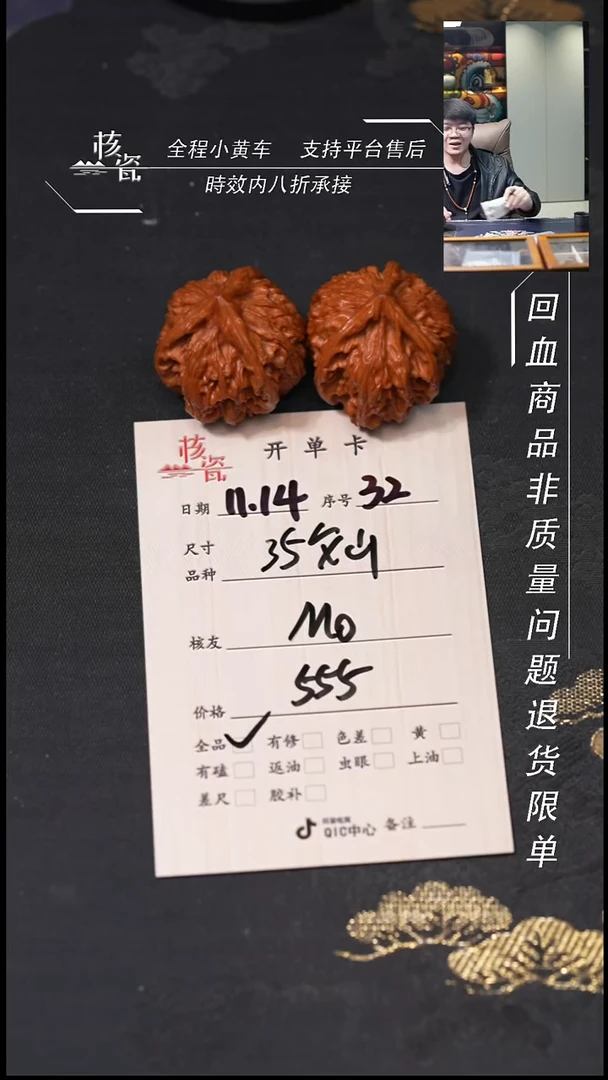 核瓷
全程小黄车 支持平台售后
時效内八折承接
回血商品非质量问题退货限单
核瓷
开单卡
日期 11.14 序号 32
尺寸
品种 35
核友 Mo
价格 555
全品 有修 色差 黄
有磕 返油 虫眼 上油
差尺 胶补
QIC中心 备注